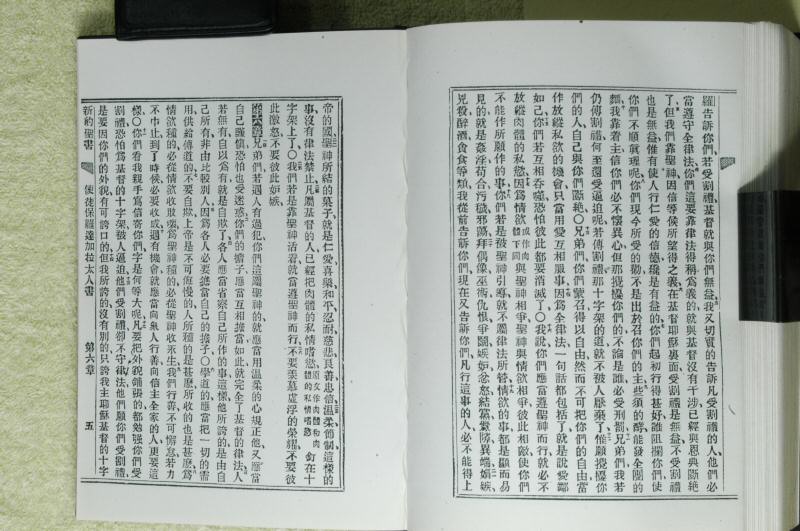 羅告訴你們、若受割禮、基督就與你們無益、我又切實的告訴凡受割禮的人、他們必
當遵守全律法、你們這要靠律法得稱爲義的、就與基督沒有干涉、已經與恩典隔絕
了、但我們靠聖神因信、等候所望得之義、在基督耶穌裏面、受割禮是無益、不受割禮
也是無益、惟有使人行仁愛的信德纔是有益的、你們起初行得甚好、誰阻攔你們、使
你們不順眞理呢、你們現今所受的勸、不是出於召你們的主、些須的酵能發全團的
麵、我靠着主信你們必不懷異心、但那攪擾你們的、不論是誰、必受刑罰、兄弟們、我若
仍傳割禮、何至還受逼迫呢、若傳割禮、那十字架的道、就不被人厭棄了、惟願攪擾你
們的人、自己與你們斷絕○兄弟們、你們蒙召得以自由、然而不可把你們的自由、當
作放縱私欲的機會、只當用愛互相服事、因爲全律法、一句話都包括了、就是說愛鄰
如己、你們若互相吞噬、恐怕彼此都要消滅了○我說你們應當遵聖神而行、就必不
放縱肉體的私慾、因爲情慾或作肉體下同與聖神相爭、聖神與情慾相爭、彼此相敵、使你們
不能作所願作的事、你們若是被聖神引導、就不屬律法所管、情慾的事、都是顯而易
見的、就是姦淫苟合污穢邪蕩拜偶像巫術仇恨爭鬭嫉妬忿怒結黨釁隙異端媢嫉
兇殺醉酒貪食等類、我從前告訴你們、現在又告訴你們、凡行這事的人、必不能得上
帝的國、聖神所結的菓子、就是仁愛喜樂和平忍耐慈悲良善忠信溫柔節制、這樣的
事、沒有律法禁止、凡屬基督的人、已經把肉體的私情嗜慾原文作肉體和肉體的私情嗜慾釘在十
字架上了○我們若是靠聖神活着、就當遵聖神而行、不要貪慕虛浮的榮耀、不要彼
此激怒、不要彼此妬嫉、
第六章兄弟們、若遇人有過犯、你們這屬聖神的、就應當用溫柔的心規正他、又應當
自己謹愼、恐怕也受迷惑、你們的擔子、應當互相擔當、如此就完全了基督的律法、人
若無有自以爲有、就是自欺了、各人應當省察自己所作的事、這樣他所誇的是由自
己所有、非由比較別人、因爲各人必要擔當自己的擔子○學道的應當把一切的需
用供給傳道的、不要自欺、上帝是不可侮慢的、人所種的是甚麽、所收的也是甚麽、爲
情慾種的、必從情慾收敗壞、爲聖神種的、必從聖神收永生、我們行善不可懈怠、若力
不中止、到了時候必要收成、遇有機會、就應當向衆人行善、向信主全家的人、更要這
樣○你們看我親手寫信寄你們、字是何等大呢、凡要把外貌鋪張的、都勉強你們受
割禮、恐怕爲基督的十字架被人逼迫、他們受割禮、卻不守律法、他們願你們受割禮、
是要因你們的外貌有可誇口的、但我所誇的沒有別的、只誇我主耶穌基督的十字
新約聖書 使徒保羅達加拉太人書 第六章 五